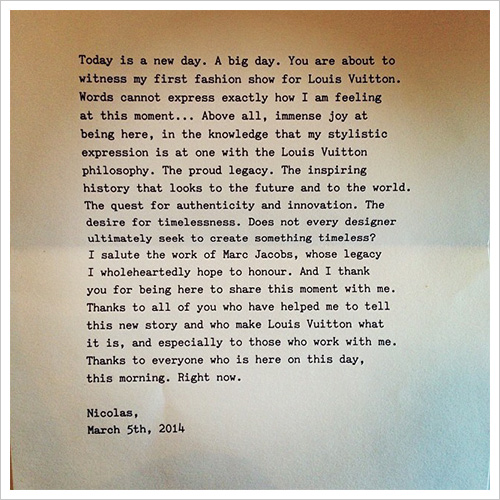 Today is a new day. A big day. You are about to
witness my first fashion show for Louis Vuitton.
Words cannot express exactly how I am feeling
at this moment... Above all, immense joy at
being here, in the knowledge that my stylistic
expression is at one with the Louis Vuitton
philosophy. The proud legacy. The inspiring
history that looks to the future and to the world.
The quest for authenticity and innovation. The
desire for timelessness. Does not every designer
ultimately seek to create something timeless?
I salute the work of Marc Jacobs, whose legacy
I wholeheartedly hope to honour. And I thank
you for being here to share this moment with me.
Thanks to all of you who have helped me to tell
this new story and who make Louis Vuitton what
it is, and especially to those who work with me.
Thanks to everyone who is here on this day,
this morning. Right now.
Nicolas,
March 5th, 2014